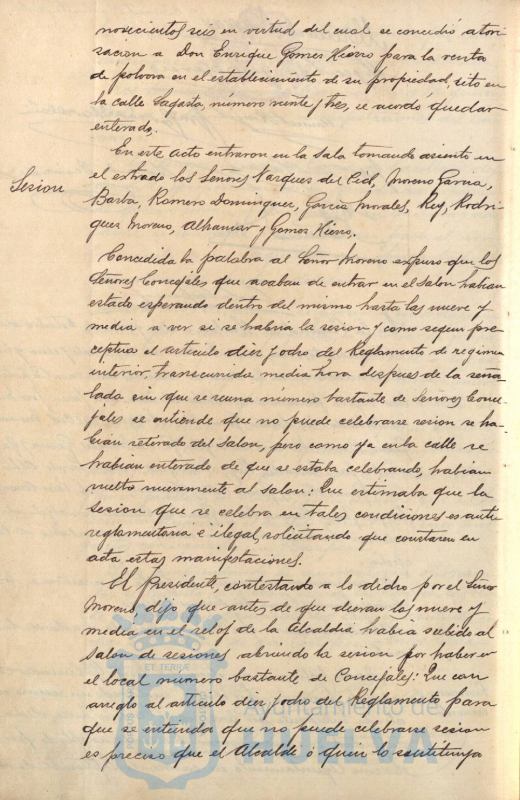 novecientos seis en virtud del cual se concedió autori-
zacion a Don Enrique Gomez Hierro para la venta
de polvora en el establecimiento de su propiedad, sito en
la calle Sagasta, número veinte y tres, se acordó quedar
enterado.
En este acto entraron en la sala tomando asiento en
Sesion
el estrado los Señores Vazquez del Cid, Moreno Garcia,
Barba, Romero Dominguez, Garcia Morales, Rey, Rodri-
guez Moreno, Alpanuar y Gomez Hierro.
Concedida la palabra al Señor Moreno expuso que los
Señores Concejales que acaban de entrar en el salon habian
estado esperando dentro del mismo hasta las nueve y
media a ver si se habria la sesion y como segun pre-
ceptua el articulo diez y ocho del Reglamento de regimen
interior, transcurrida media hora despues de la seña-
lada sin que se reuna número bastante de Señores Conce-
jales se entiende que no puede celebrarse sesion se ha-
bian retirado del salon, pero como ya en la calle se
habian enterado de que se estaba celebrando, habian
vuelto nuevamente al salon: Que estimaba que la
sesion que se celebra en tales condiciones es anti-
reglamentaria é ilegal, solicitando que constaren en
acta estas manifestaciones.
El Presidente, contestando a lo dicho por el Señor
Moreno, dijo que antes de que dieran las nueve y
media en el reloj de la Alcaldia habia subido al
salon de sesiones abriendo la sesion por haber en
el local número bastante de Concejales: Que con
arreglo al articulo diez y ocho del Reglamento para
que se entienda que no puede celebrarse sesion
es preciso que el Alcalde ó quien lo sustituya
ET TERRÆ
Ayuntamiento de